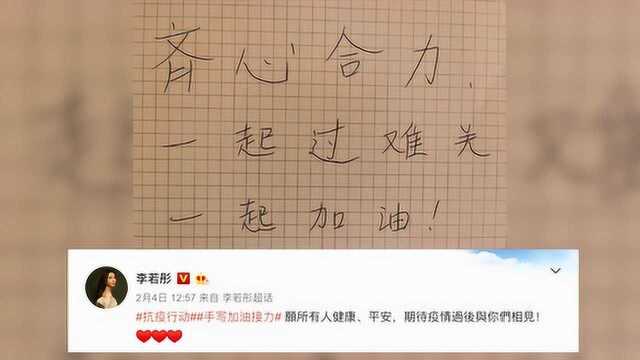 齐心合力,
一起过难关
一起加油!
李若彤
2月4日 12:57 来自 李若彤超话
#抗疫行动##手写加油接力# 願所有人健康、平安，期待疫情過後與你們相見！